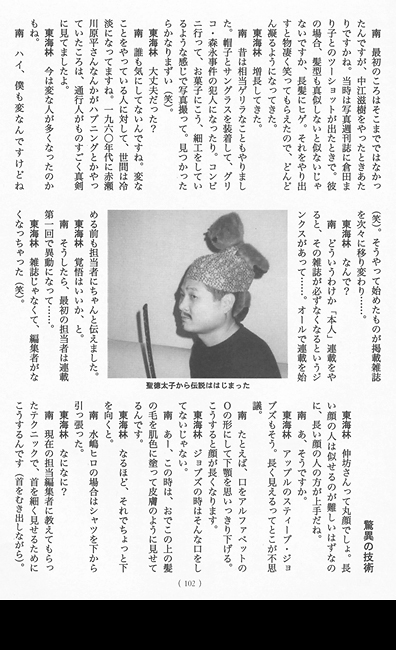 南　最初のころはそこまではなかっ
たんですが、中江滋樹をやったときあた
りですかね。当時は写真週刊誌に倉田ま
り子とのツーショットが出たときで。彼
の場合、髪型も真似しないと似ないじゃ
ないですか、長髪にヒゲ。それをやり出
すと物凄く笑ってもらえたので、どんど
ん凝るようになってきた。
東海林　増長してきた。
南　昔は相当ゲリラなこともやりまし
た。帽子とサングラスを装着して、グリ
コ・森永事件の犯人になったり。コンビ
ニ行って、お菓子にこう、細工をしてい
るような感じで写真撮って。見つかった
らかなりまずい（笑）。
東海林　大丈夫だった？
南　誰も気にしてないんですね。変な
ことをやっている人に対して、世間は冷
淡になってますね。一九六〇年代に赤瀬
川原平さんなんかがハプニングとかやっ
ていたころは、通行人がものすごく真剣
に見てましたよ。
東海林　今は変な人が多くなったのか
もね。
南　ハイ、僕も変なんですけどね
（笑）。そうやって始めたものが掲載雑誌
を次々に移り変わり……。
東海林　なんで？
南　どういうわけか「本人」連載をや
ると、その雑誌が必ずなくなるというジ
ンクスがあって……。オールで連載を始
める前も担当者にちゃんと伝えました。
東海林　覚悟はいいか、と。
南　そうしたら、最初の担当者は連載
第一回で異動になって……。
東海林　雑誌じゃなくて、編集者がな
くなっちゃった（笑）。
聖徳太子から伝説ははじまった
驚異の技術
東海林　伸坊さんって丸顔でしょ。長
い顔の人は似せるのが難しいはずなの
に、長い顔の人の方が上手だね。
南　あ、そうですか。
東海林　アップルのスティーブ・ジョ
ブズもそう。長く見えるってとこが不思
議。
南　たとえば、口をアルファベットの
Oの形にして下顎を思いっきり下げる。
こうすると顔が長くなります。
東海林　ジョブズの時はそんな口をし
てないじゃない。
南　あー、この時は、おでこの上の髪
の毛を肌色に塗って皮膚のように見せて
るんです。
東海林　なるほど、それでちょっと下
を向くと。
南　水嶋ヒロの場合はシャツを下から
引っ張った。
東海林　なになに？
南　現在の担当編集者に教えてもらっ
たテクニックで、首を細く見せるために
こうするんです（首をむき出しながら）。
（102）